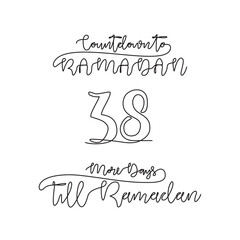 Countdown to
RAMADAN
38
More Days
Till Ramadan